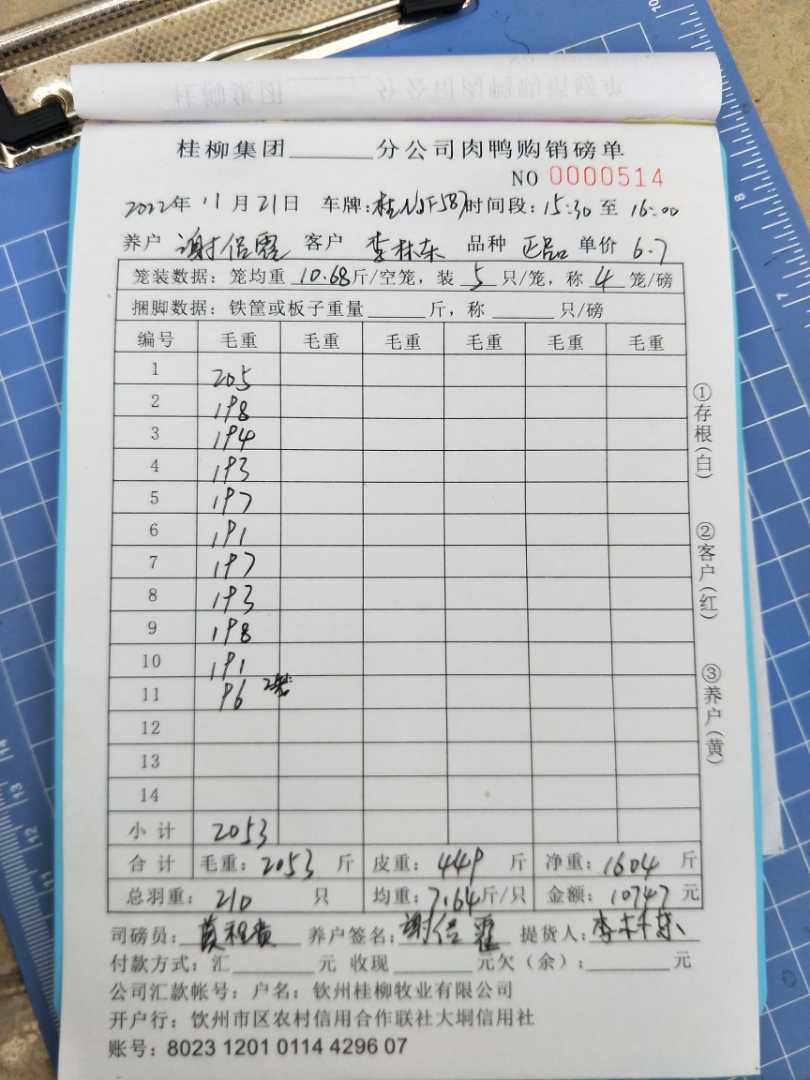 桂柳集团______分公司肉鸭购销磅单
NO 0000514
2022年 11月21日 车牌:桂NJF587 时间段:15:30 至 16:00
养户 谢侣霞 客户 李林东 品种 正品 单价 6.7
笼装数据: 笼均重 10.68斤/空笼, 装 5 只/笼, 称 4 笼/磅
捆脚数据: 铁筐或板子重量______斤, 称______只/磅
编号 毛重 毛重 毛重 毛重 毛重 毛重
1 205
2 198
3 194
4 193
5 197
6 191
7 197
8 193
9 198
10 191
11 96 2笼
12
13
14
小计 2053
合计 毛重: 2053 斤 皮重: 449 斤 净重: 1604 斤
总羽重: 210 只 均重: 7.64斤/只 金额: 10747 元
司磅员: 养户签名: 谢侣霞 提货人: 李林东
付款方式: 汇______元 收现______元欠(余):______元
公司汇款帐号: 户名: 钦州桂柳牧业有限公司
开户行: 饮州市区农村信用合作联社大垌信用社
账号: 8023 1201 0114 4296 07
①存根(白)
②客户(红)
③养户(黄)